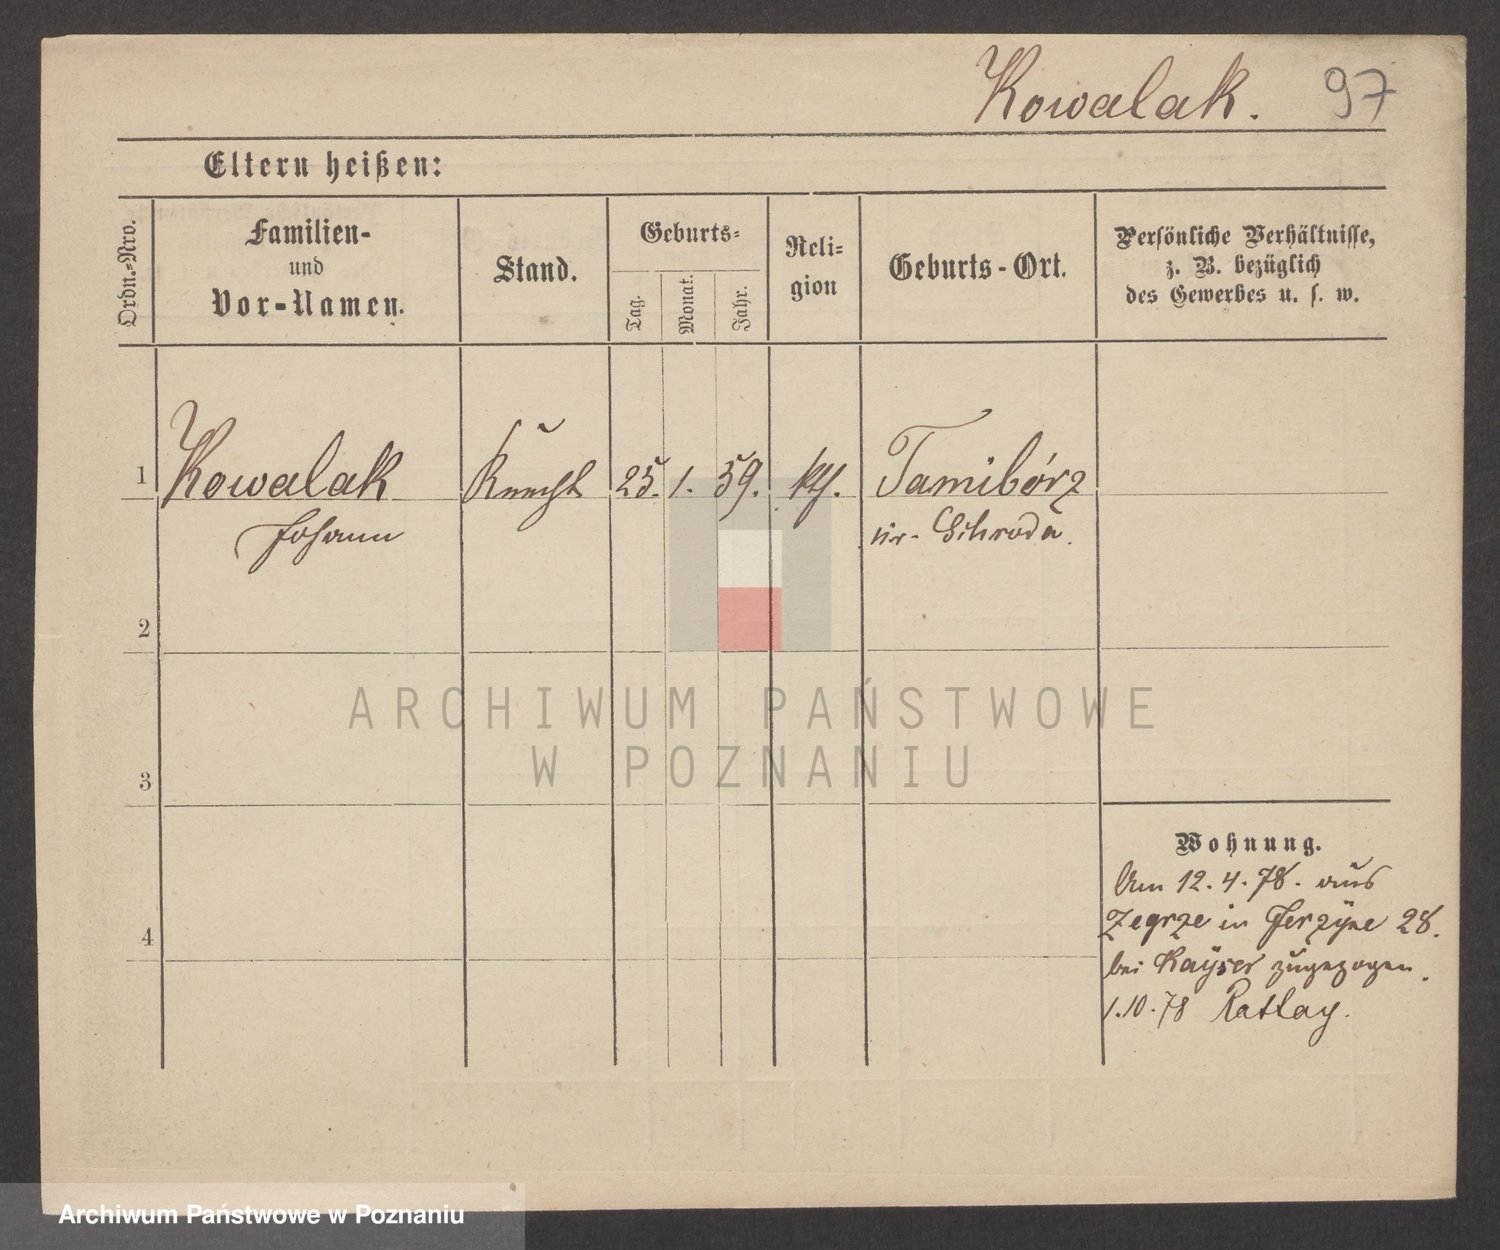 Kowalak. 97
Eltern heißen:
Ordn.-Nro.
Familien-
und
Vor-Namen.
Stand.
Geburts-
Tag.
Monat.
Jahr.
Reli-
gion
Geburts-Ort.
Persönliche Verhältnisse,
z. B. bezüglich
des Gewerbes u. s. w.
1 Kowalak Knecht 25. 1. 59. kth. Tamibórz
Johann Kr. Schroda.
2
ARCHIWUM PAŃSTWOWE
W POZNANIU
3
Wohnung.
Am 12. 4. 78. aus
Zegrze in Jerzyce 28.
bei Kayser zugezogen.
1.10.78 Rattay.
4
Archiwum Państwowe w Poznaniu